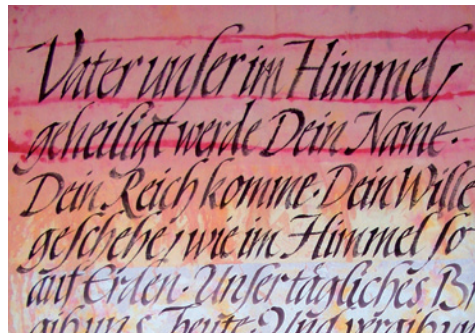 Vater unſer im Himmel,
geheiligt werde Dein Name.
Dein Reich komme · Dein Wille
geſchehe, wie im Himmel ſo
auf Erden · Unſer tägliches B
gib uns heute · Und vergib u